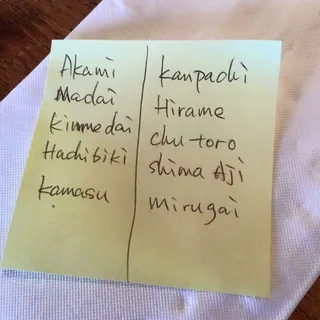 Akami
Madai
Kinmedai
Hachibiki
Kamasu
Kanpachi
Hirame
chu-toro
shima Aji
mirugai